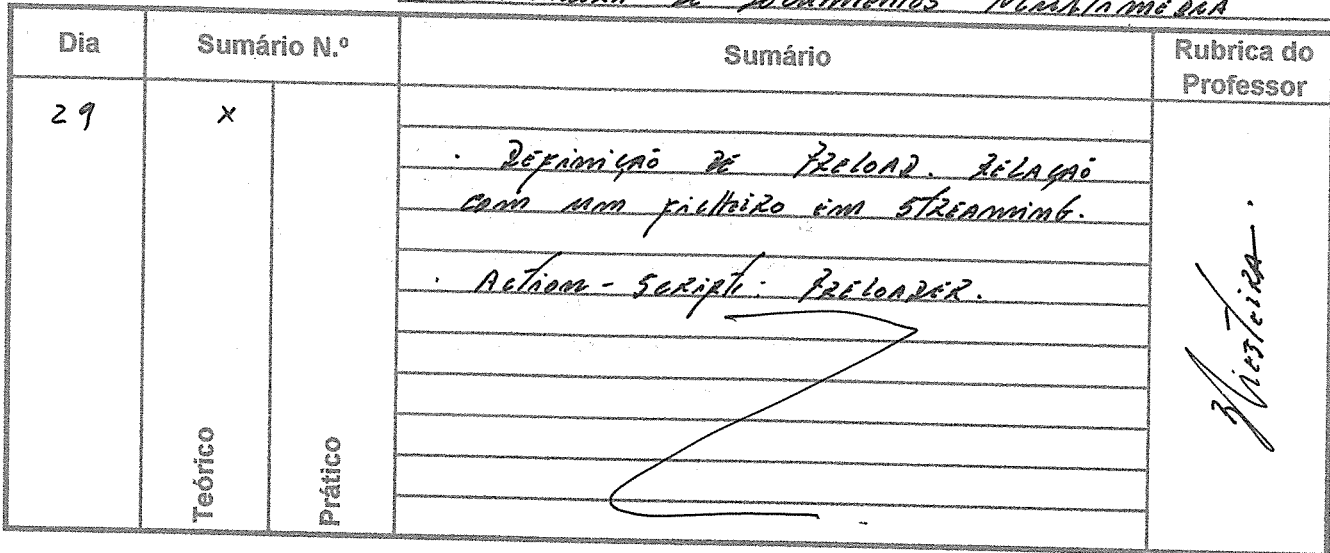 de Documentos Multimédia
Dia
Sumário N.º
Sumário
Rubrica do
Professor
29
x
Teórico
Prático
. Definição de Preload. Relação
com um ficheiro em streaming.
. Action-Script: Preloader.